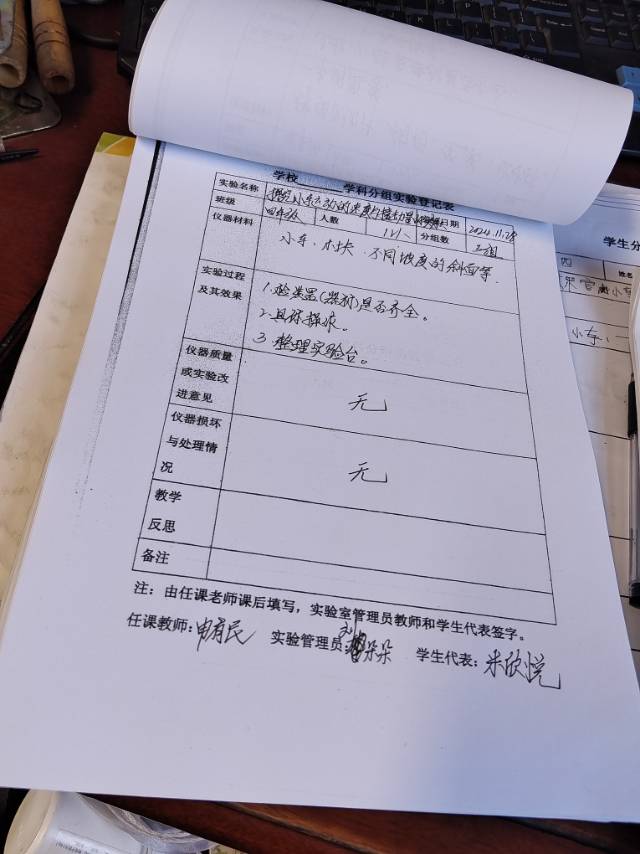 学校 学科分组实验登记表
实验名称 探究小车运动的速度与 日期 2024.11.28
班级 四年级 人数 分组数
仪器材料 小车、木块、不同坡度的斜面等.
实验过程及其效果
1.检装置(器材)是否齐全。
2.具体操作。
3.整理实验台。
仪器质量或实验改进意见 无
仪器损坏与处理情况 无
教学
反思
备注
注：由任课老师课后填写，实验室管理员教师和学生代表签字。
任课教师: 申有民 实验管理员: 朵朵 学生代表: 米欣悦
学生分
姓名
小车、